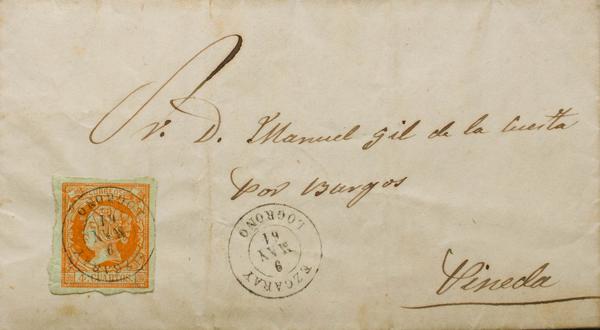 Sr. D. Manuel Gil de la Cuesta
por Burgos
Pineda
EZCARAY
9
MAY
61
LOGROÑO
CORREOS
4 CUARTOS
LOGROÑO